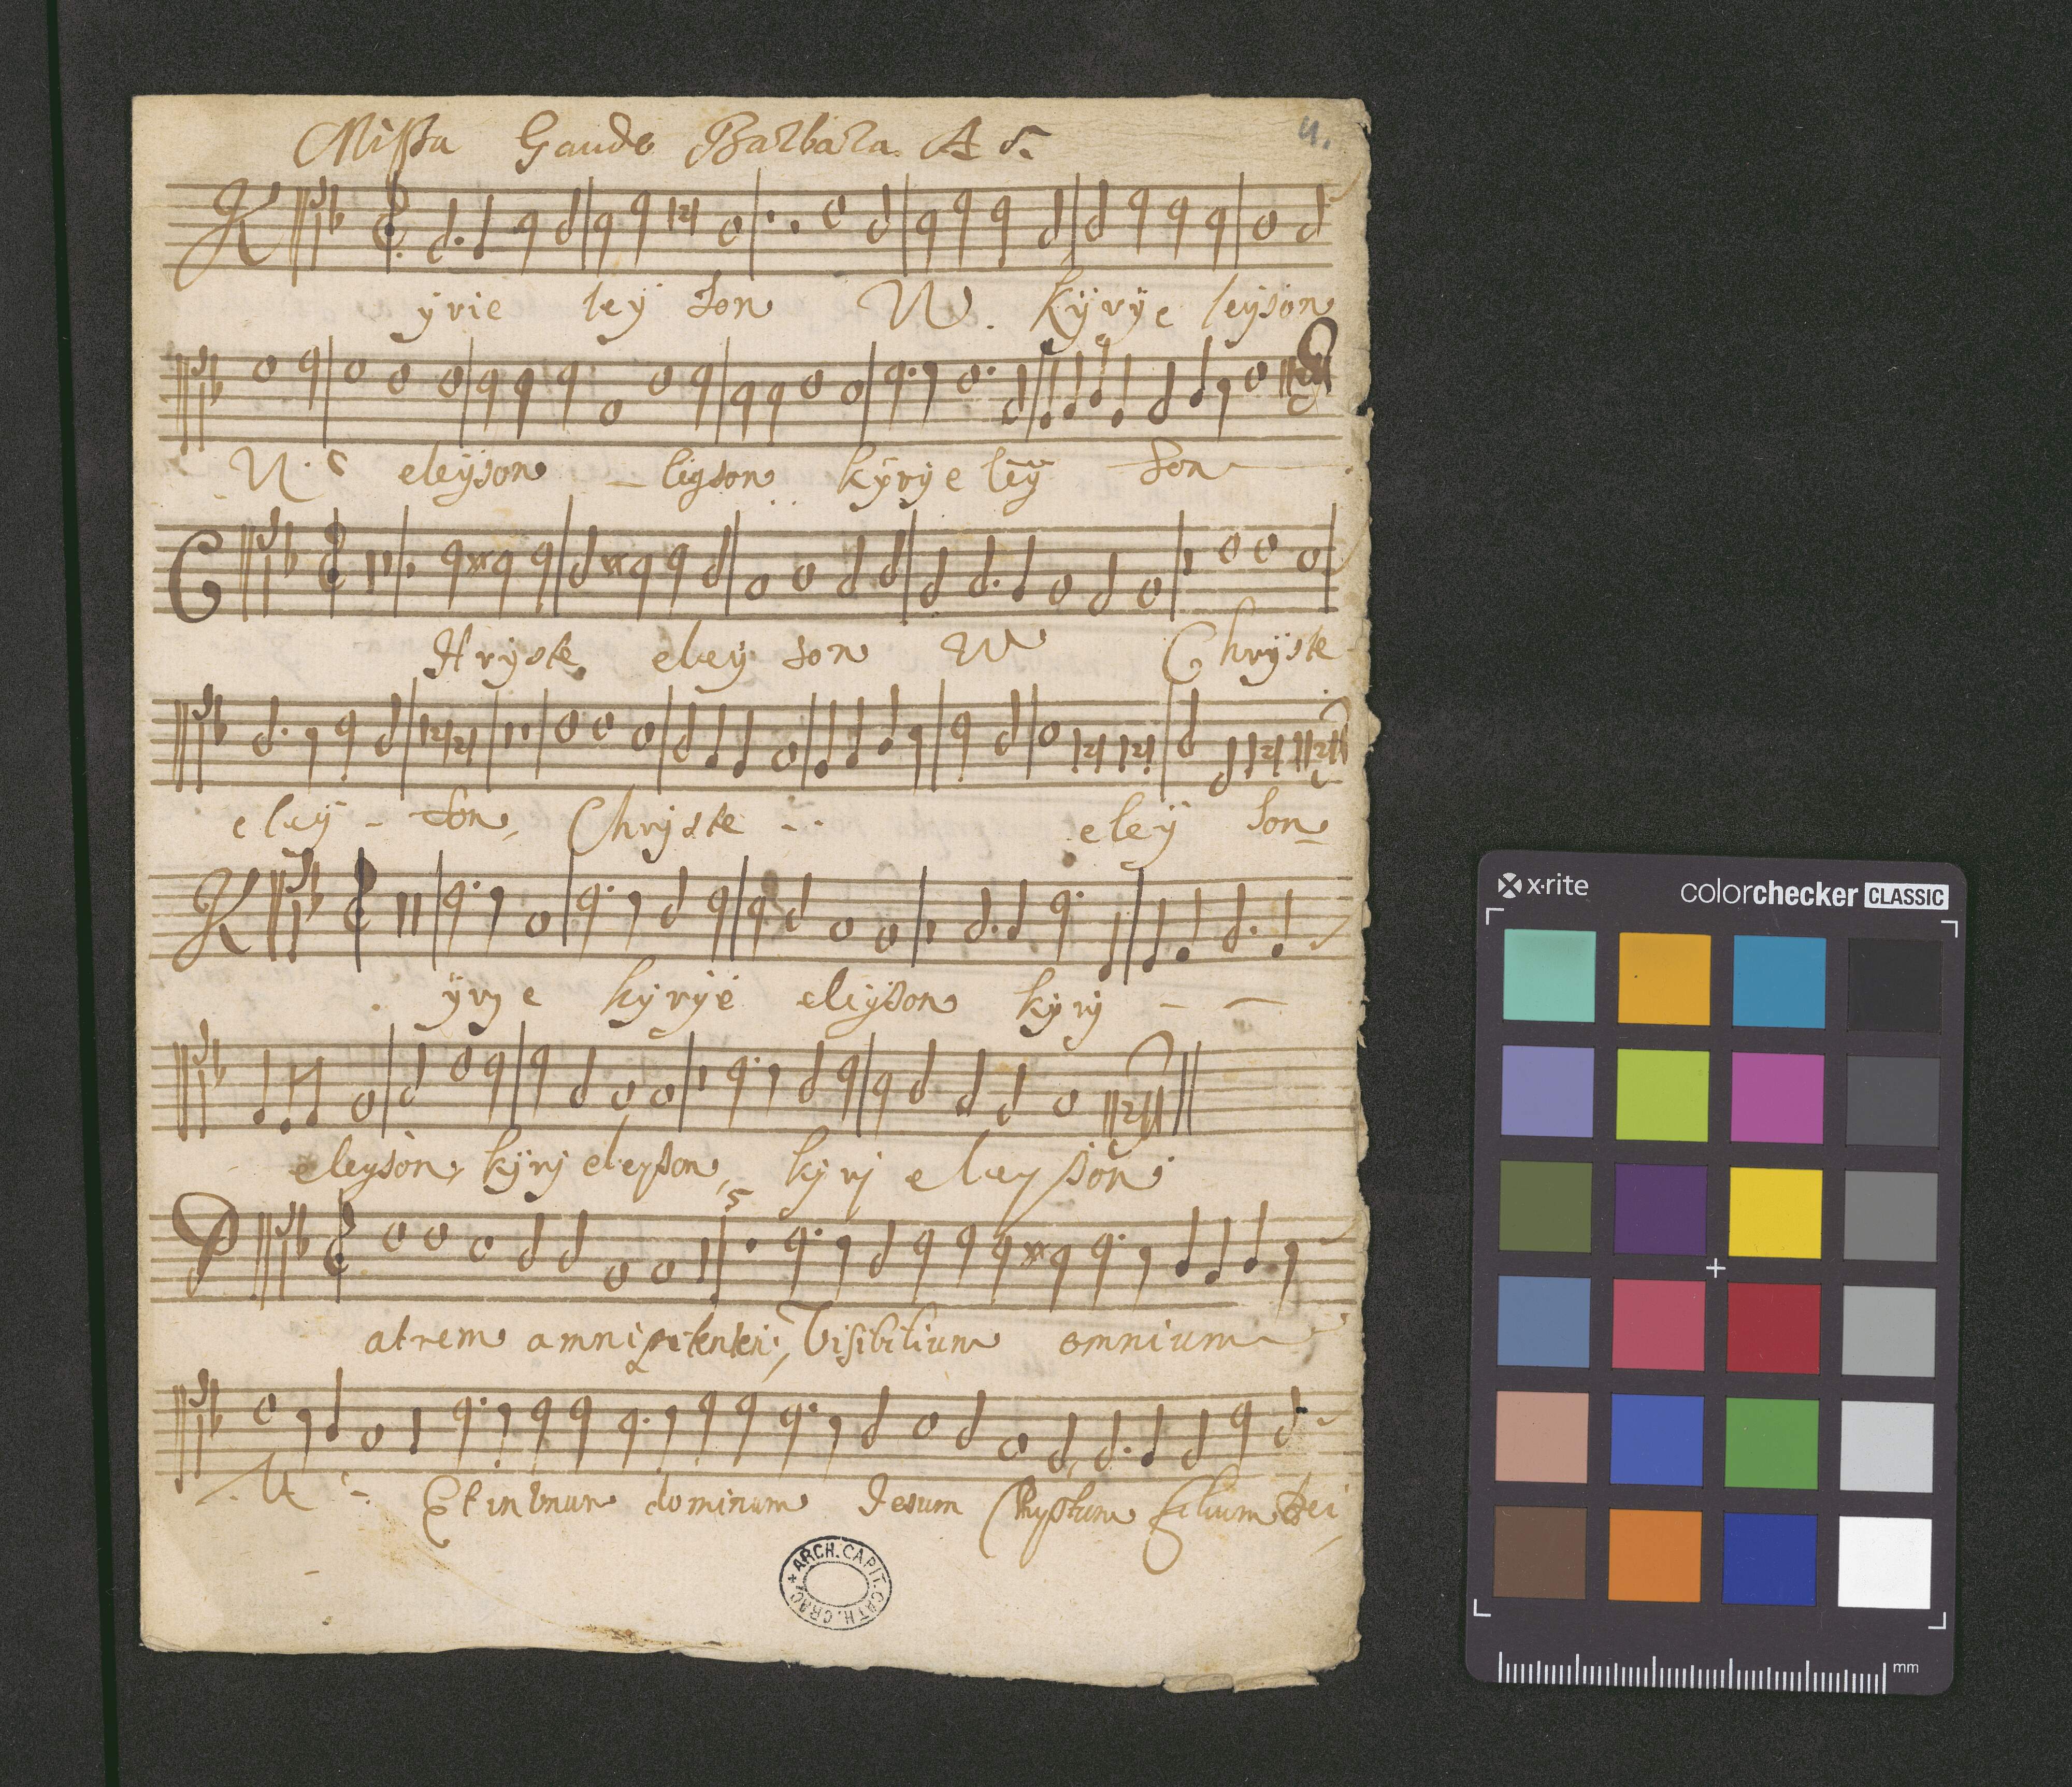 Missa Gaude Barbara A 5.
4.
Kyrie ley son W. kÿrÿe leÿson
eleÿson – ligson kÿrÿe leÿ son
CHrÿste eleÿ son W Chrÿste
eleÿ – son, Chrÿste - - eleÿ son
Kÿrye kÿrÿe eleÿson kÿrÿ – –
eleyson, kÿrÿ eleyson, kÿrÿ eleyson
5
Patrem omnipotentem, Visibilium omnium
Et in Unum dominum Jesum Chrystum filium Dei
ARCH. CAPIT. CATH. CRAC.
x·rite
colorchecker CLASSIC
mm